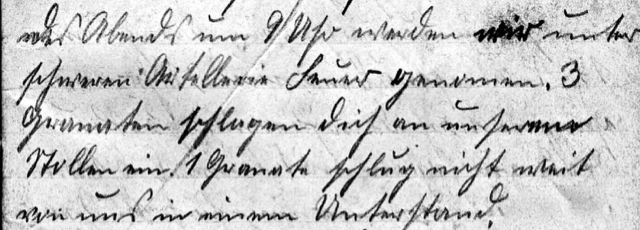 des Abends um 9 Uhr werden wir unter
schweren Artellerie Feuer genomen. 3
Granaten schlagen dich an unserem
Stollen ein. 1 Granate schlug nicht weit
von uns in einem Unterstand.